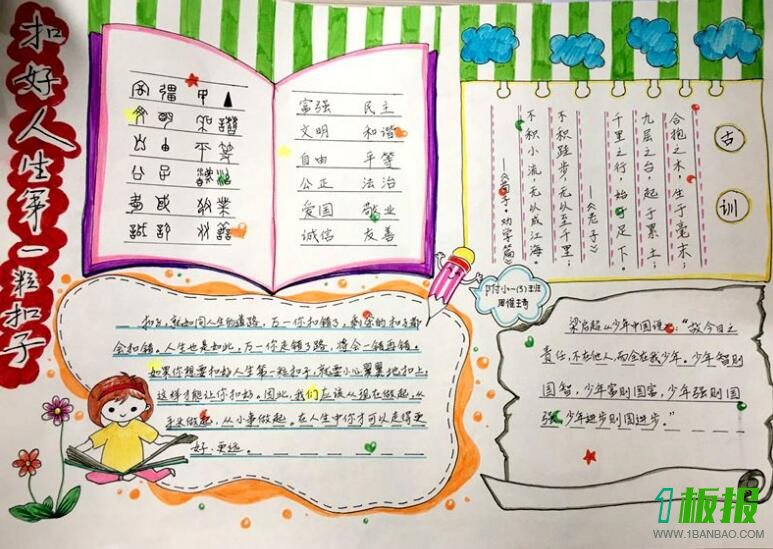 扣好人生第一粒扣子
富强 民主
文明 和谐
自由 平等
公正 法治
爱国 敬业
诚信 友善
古训
合抱之木,生于毫末;
九层之台,起于累土;
千里之行,始于足下。
——《老子》
不积跬步,无以至千里;
不积小流,无以成江海。
学篇》
附小一(5)班
扣子,就如同人生的道路,万一你扣错了,剩余的扣子都
会扣错。人生也是如此,万一你走错了路,将会一错再错。
如果你想要扣好人生第一粒扣子,就要小心翼翼地扣上,
这样才能让你扣好。因此,我们应该从现在做起,从
做起,从小事做起。在人生中你才可以走得更
好、更远。
梁启超《少年中国说》:“故今日之
责任,不在他人,而全在我少年。少年智则
国智,少年富则国富,少年强则国
强,少年进步则国进步。”
1板报
WWW.1BANBAO.COM